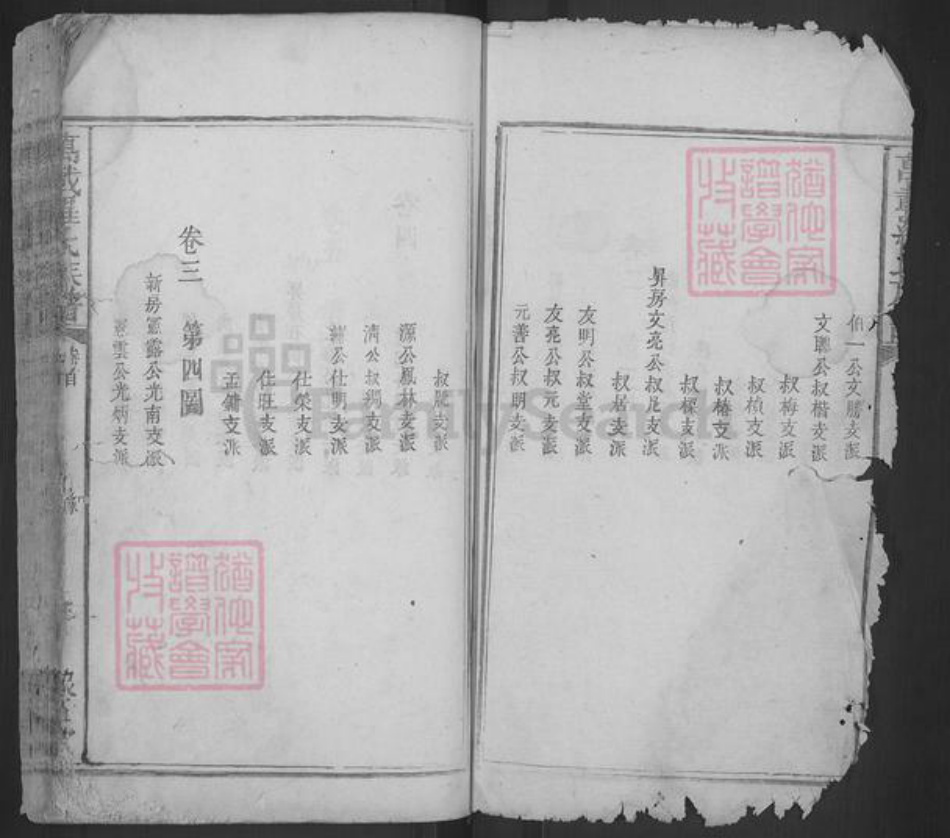 伯一公文勝支派
文聰公叔楷支派
叔梅支派
叔楨支派
叔椿支派
叔樑支派
昇房文亮公叔尼支派
叔居支派
友明公叔堂支派
友亮公叔元支派
元善公叔明支派
叔龍支派
源公鳳林支派
清公叔綢支派
仕明支派
仕榮支派
仕旺支派
孟鏞支派
卷三 第四圖
新房雲露公光南支派
雲公光炳支派
萬載 氏族譜
卷首
猶他家
譜學會
收藏
猶他家
譜學會
收藏
FamilySearch